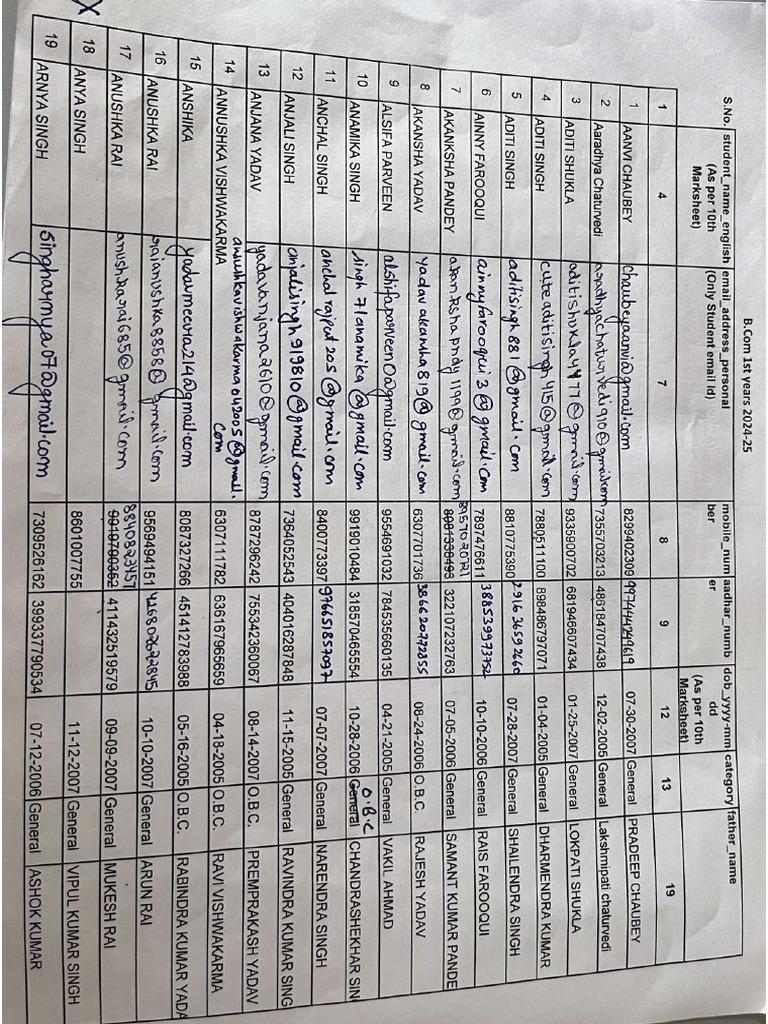 B.Com 1st years 2024-25
S.No. student_name_english (As per 10th Marksheet) email_address_personal (Only Student email Id) mobile_number aadhar_number dob_yyyy-mm dd (As per 10th Marksheet) category father_name
1 4 7 8 9 12 13 19
1 AANVI CHAUBEY chaubeyaanvi@gmail.com 8299402309 07-30-2007 General PRADEEP CHAUBEY
2 Aaradhya Chaturvedi aaradhyachaturvedi910@gmail.com 7355703213 486184707438 12-02-2005 General Lakshmipati chaturvedi
3 ADITI SHUKLA aditishukla4477@gmail.com 9335900702 681946607434 01-25-2007 General LOKPATI SHUKLA
4 ADITI SINGH cuteaditisingh415@gmail.com 7880511100 898486797071 01-04-2005 General DHARMENDRA KUMAR
5 ADITI SINGH aditisingh881@gmail.com 8810775390 291636592660 07-28-2007 General SHAILENDRA SINGH
6 AINNY FAROOQUI ainnyfarooqui3@gmail.com 7897476611 388539973752 10-10-2006 General RAIS FAROOQUI
7 AKANKSHA PANDEY akankshapndy1199@gmail.com 8957020721 322107232763 07-05-2006 General SAMANT KUMAR PANDE
8 AKANSHA YADAV yadavakanha819@gmail.com 6307701736 386620772855 08-24-2006 O.B.C. RAJESH YADAV
9 ALSIFA PARVEEN alshifaparveen0@gmail.com 9554691032 784535660135 04-21-2005 General VAKIL AHMAD
10 ANAMIKA SINGH singh71anamika@gmail.com 9919010484 318570465554 10-28-2006 General O.B.C CHANDRASHEKHAR SIN
11 ANCHAL SINGH anchalrajput205@gmail.com 8400773397 976651857097 07-07-2007 General NARENDRA SINGH
12 ANJALI SINGH anjalisingh919810@gmail.com 7364052543 404016287848 11-15-2005 General RAVINDRA KUMAR SING
13 ANJANA YADAV yadavanjana2610@gmail.com 8787296242 755342360067 08-14-2007 O.B.C. PREMPRAKASH YADAV
14 ANNUSHKA VISHWAKARMA anushkavishwakarma042005@gmail.com 6307111782 636167965659 04-18-2005 O.B.C. RAVI VISHWAKARMA
15 ANSHIKA yadavmeena214@gmail.com 8087327266 451412783988 05-16-2005 O.B.C. RABINDRA KUMAR YADA
16 ANUSHKA RAI raianushka8858@gmail.com 9569494151 426803672845 10-10-2007 General ARUN RAI
17 ANUSHKA RAI anushkarai685@gmail.com 8840823457 411432519579 09-09-2007 General MUKESH RAI
18 ANYA SINGH 8601007755 11-12-2007 General VIPUL KUMAR SINGH
X
19 ARNYA SINGH singharnya07@gmail.com 7309526162 399337790534 07-12-2006 General ASHOK KUMAR